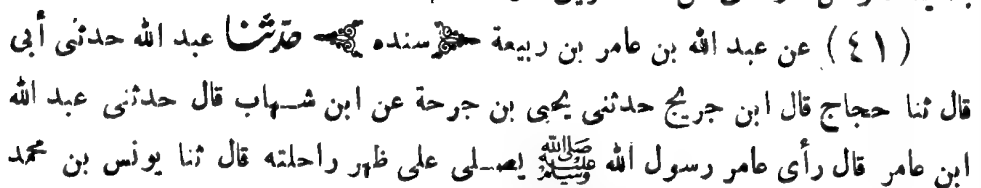 (٤١) عن عبد الله بن عامر بن ربيعة ﴿سنده﴾ حدثنا عبد الله حدثنى أبى
قال ثنا حجاج قال ابن جريج حدثنى يحيى بن جرجة عن ابن شهاب قال حدثنى عبد الله
ابن عامر قال رأى عامر رسول الله ﷺ يصلى على ظهر راحلته قال ثنا يونس بن محمد